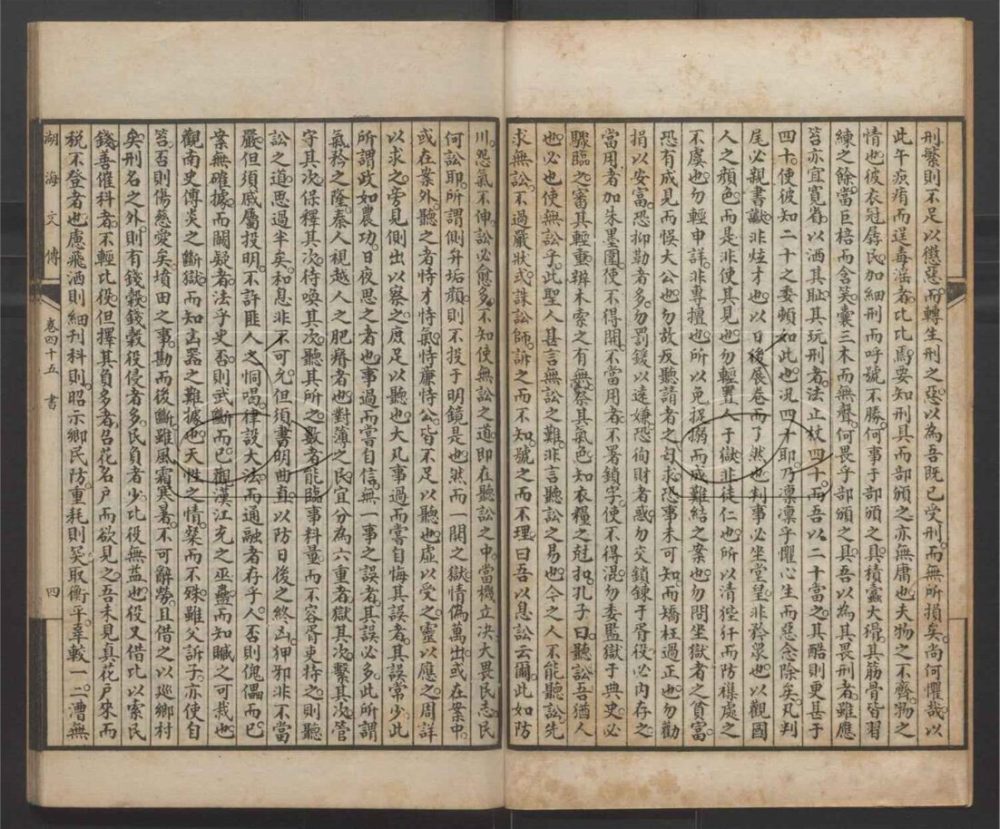 刑繁則不足以懲惡而轉生刑之惡以為吾既已受刑而無所損矣尚何懼哉以
此午痎痏而逞毒滛者比比焉要知刑具而部頒之亦無庸也夫物之不齊物之
情也彼衣冠孱民加細刑而呼號不勝何事于部頒之具積蠹大猾其筋骨皆習
練之餘當巨棓而含笑囊三木而無聲何畏乎部頒之具吾以為其畏刑者雖應
笞亦宜寬㫷以洒其耻其玩刑者法止杖四十而吾以二十當之其酷則更甚于
四十使彼知二十之委頓如此也况四十耶乃凛凛乎懼心生而惡念除矣凡判
尾必親書讞非炫才也以日後展卷而了然也判事必坐堂皇非矜衆也以觀國
人之顏色而是非使其見也勿輕置人于獄非徒仁也所以清狴犴而防楳處之
不虞也勿輕申詳非專擅也所以免捉搦而成難結之案也勿問坐獄者之貧富
恐有成見而悞大公也勿故反聽請者之勾求恐事未可知而矯枉過正也勿勸
捐以安富恐抑勒者多勿罰鍰以遠嫌恐徇財者惑勿交鎖鍊于胥役必内存之
當用者加朱墨圏使不得開不當用者不署鎖字使不得混勿委監獄于典史必
驟臨之審其輕重辨木索之有無察其氣色知衣糧之尅扣孔子曰聽訟吾猶人
也必也使無訟乎此聖人甚言無訟之難非言聽訟之易也今之人不能聽訟先
求無訟不過嚴狀式誅訟師訴之而不知號之而不理曰吾以息訟云爾此如防
川怨氣不伸訟必愈多不知使無訟之道即在聽訟之中當機立决大畏民志民
何訟耶所謂側弁垢顔則不投于明鏡是也然而一閧之獄情偽萬出或在案中
或在案外聽之者恃才恃氣恃亷恃公皆不足以聽也虛以受之靈以應之周詳
以求之旁見側出以察之庶足以聽也大凡事過而嘗自悔其誤者其誤常少此
所謂政如農功日夜思之者也事過而嘗自信無一事之誤者其誤必多此所謂
氣矜之隆秦人視越人之肥瘠者也對簿之民宜分為六重者獄其次繫其次管
守其次保釋其次待喚其次聽其所之數者能臨事料量而不容胥吏持之則聽
訟之道思過半矣和息非不可允但須書明曲直以防日後之終凶狎邪非不當
嚴但須威屬投明不許匪人之恫喝律設大法而通融者存乎人否則傀儡而已
案無確據而闕疑者法乎史否則武斷而已觀漢江充之巫蠱而知贓之可栽也
觀南史傅炎之斷獄而知凶器之難據也天性之情槩而不殊雖父訴子亦使自
笞否則傷慈愛矣墳田之事勘而後斷雖風霜寒暑不可辭勞且借之以廵鄉村
矣刑名之外則有錢穀錢穀役侵者多民負者少比役無益也役又借比以索民
錢善催科者不輕比役但擇其負多者召花名戸而欲見之吾未見真花戸來而
税不登者也慮飛洒則細刊科則昭示鄉民防重耗則笑取衡平辜較一二漕無
湖海文傳
卷四十五 書
四